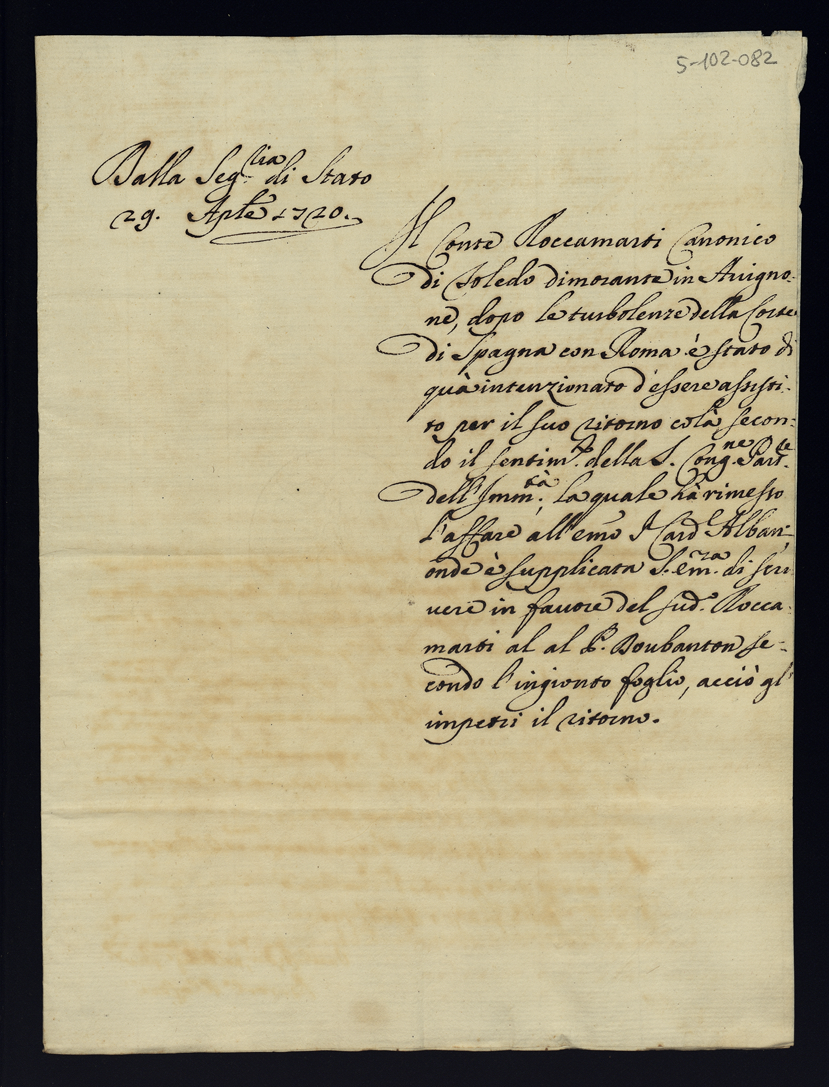 5-102-082
Dalla Seg.ria di Stato
29. Aple 1720.
Il Conte Roccamarti Canonico
di Toledo dimorante in Auigno-
ne, dopo le turbolenze della Corte
di Spagna con Roma è stato di
quà intenzionato d'essere assisti-
to per il suo ritorno colà secon-
do il sentim.to della S. Cong.ne Part.re
dell'Imm.tà, la quale hà rimesso
l'affare all'emo S. Card.l Albani,
onde è supplicata S. Em.za di scri-
uere in fauore del sud.o Rocca-
marti al al P. Doubanton se-
condo l'ingionto foglio, acciò gl'
impetri il ritorno.